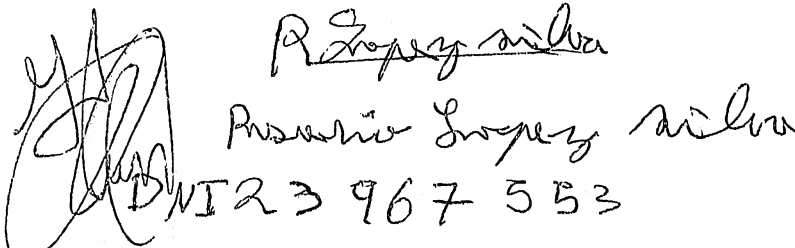 R Lopez silva
Rosario Lopez silva
DNI 23 967 553